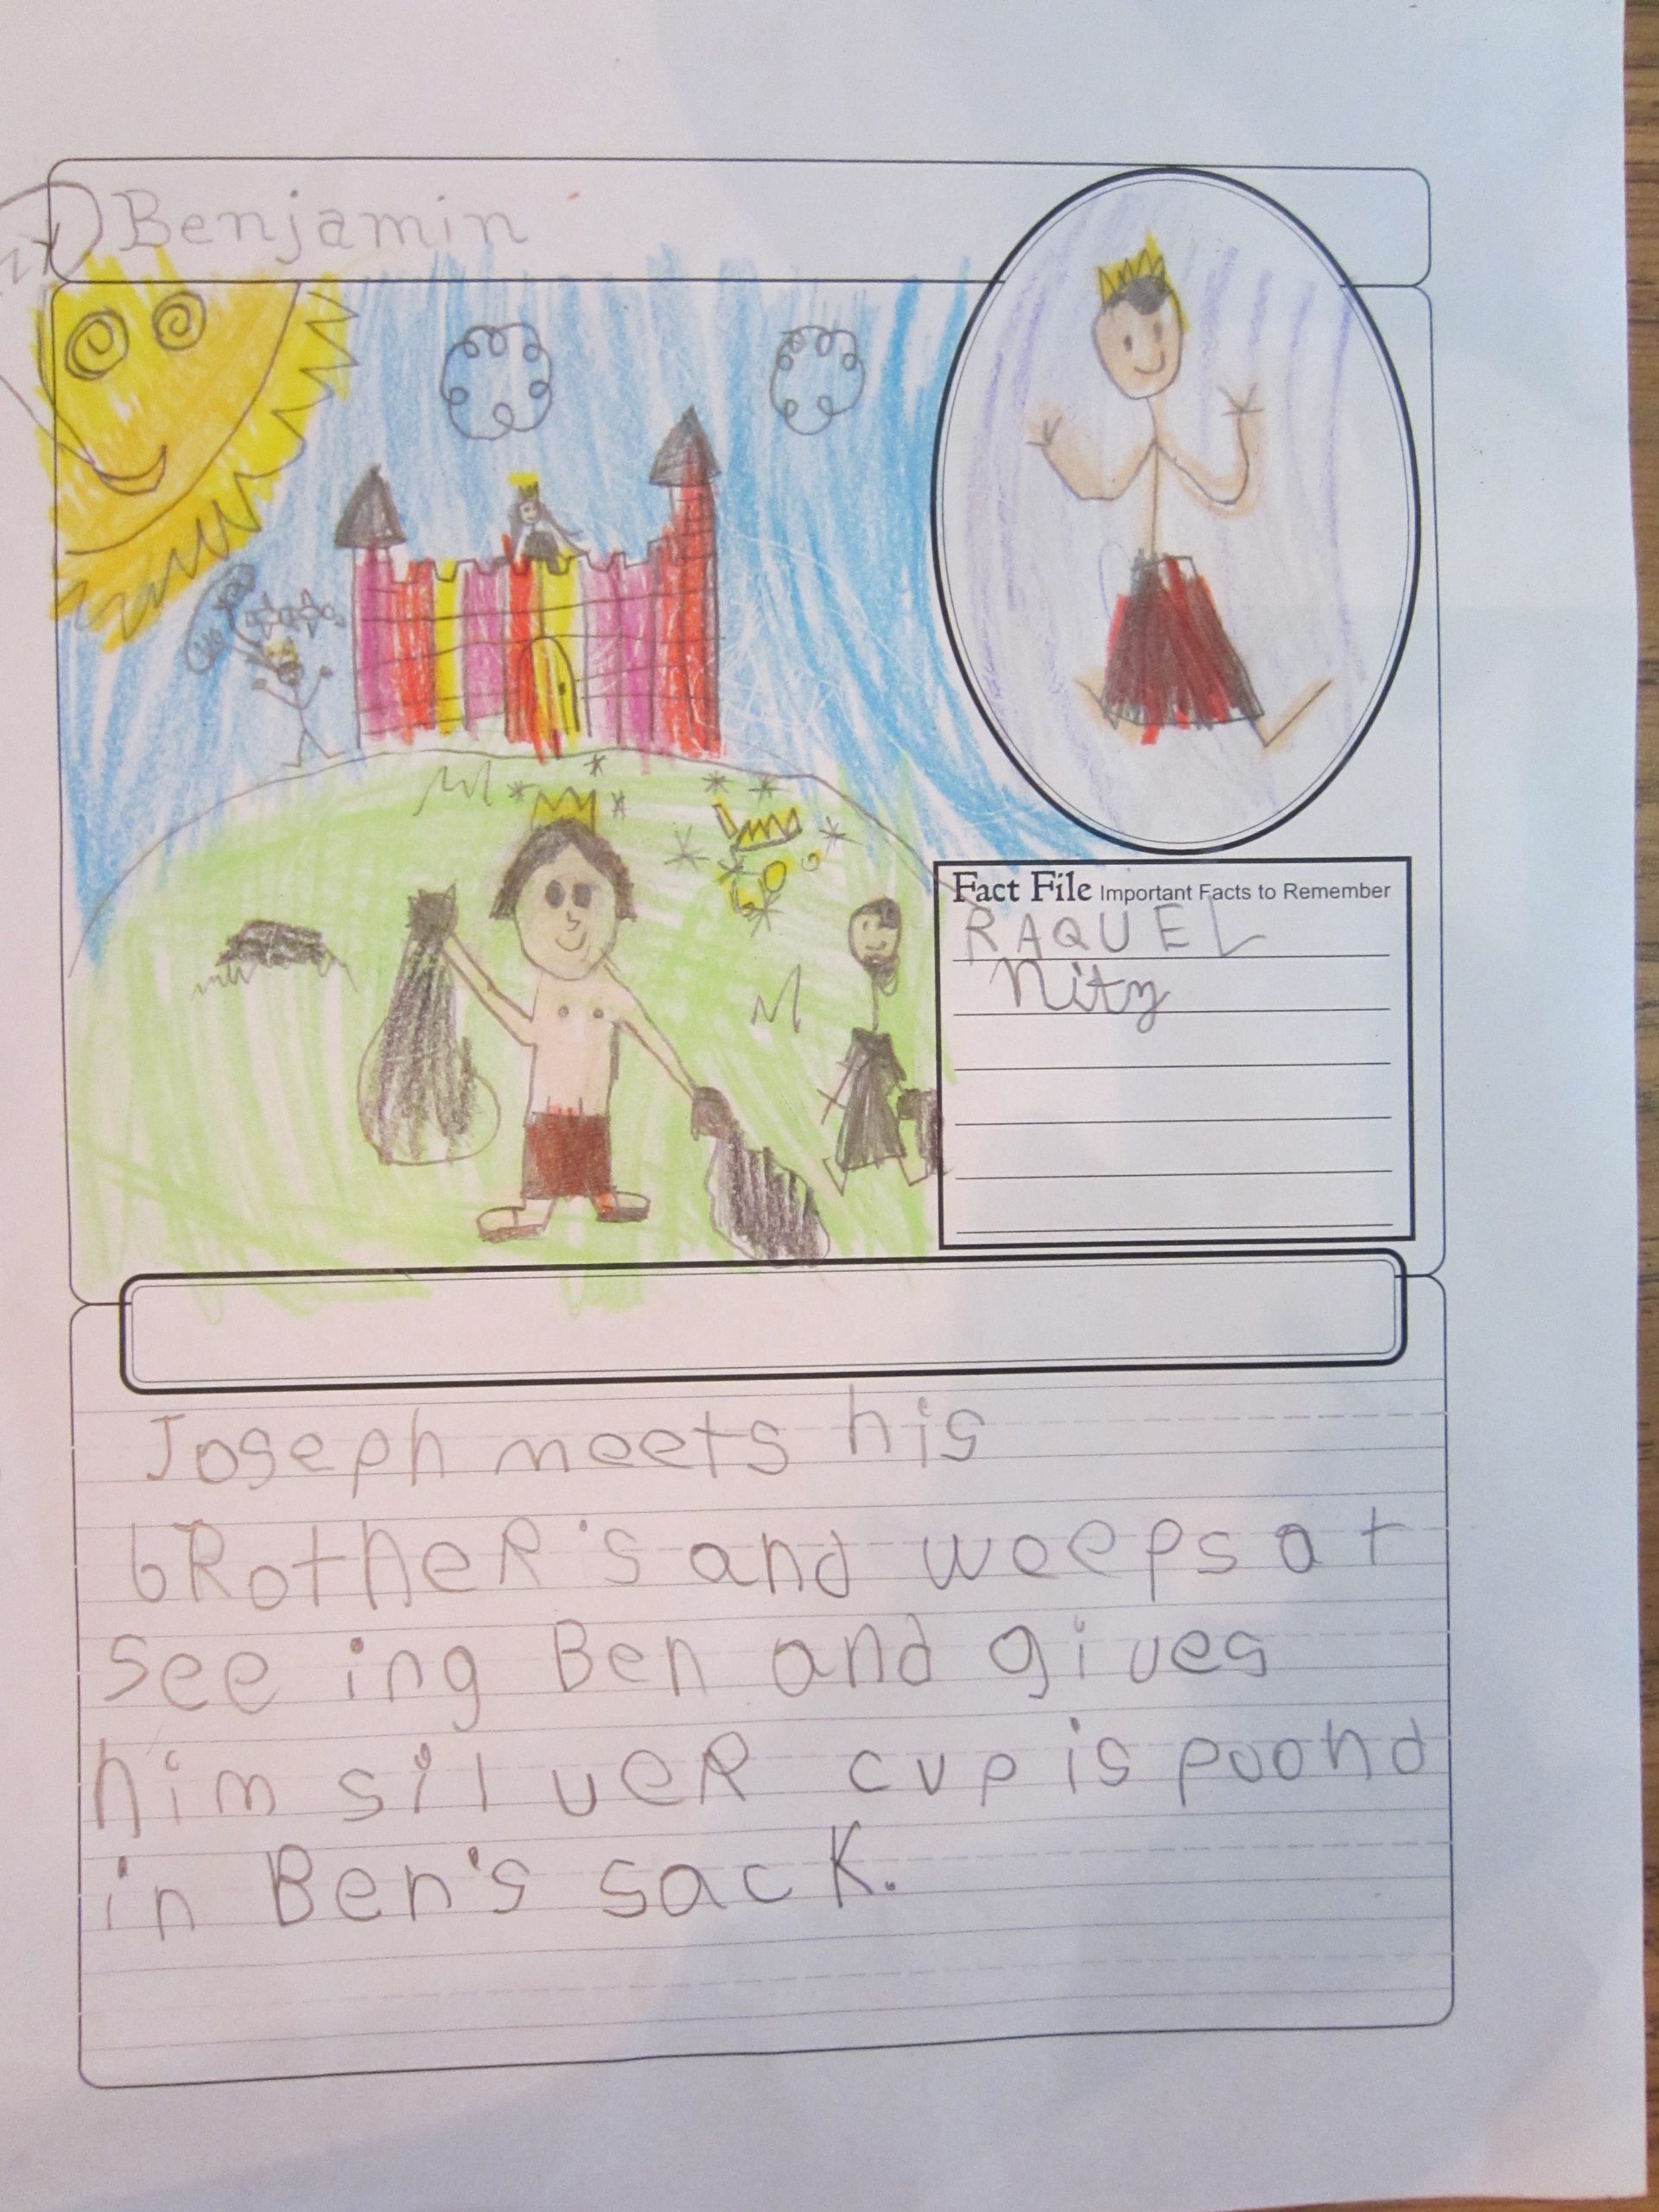 Benjamin
Fact File Important Facts to Remember
RAQUEL
Nity
Joseph meets his
bRotheR's and weeps at
see ing Ben and gives
him silveR cup is poond
in Ben's sacK.